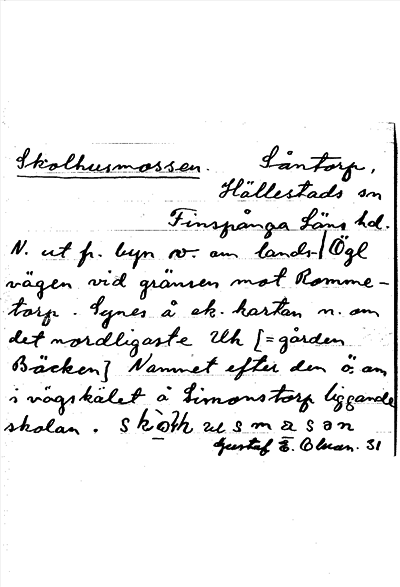 Skolhusmossen. Såntorp,
Hällestads sn
Finspånga Läns hd.
N. ut fr. byn v. om lands- Ögl
vägen vid gränsen mot Romme-
torp. Synes å ek. kartan n. om
det nordligaste Uh [= gården
Bäcken] Namnet efter den ö. om
i vägskälet å Simonstorp liggande
skolan.
Gustaf E. Olsson. 31